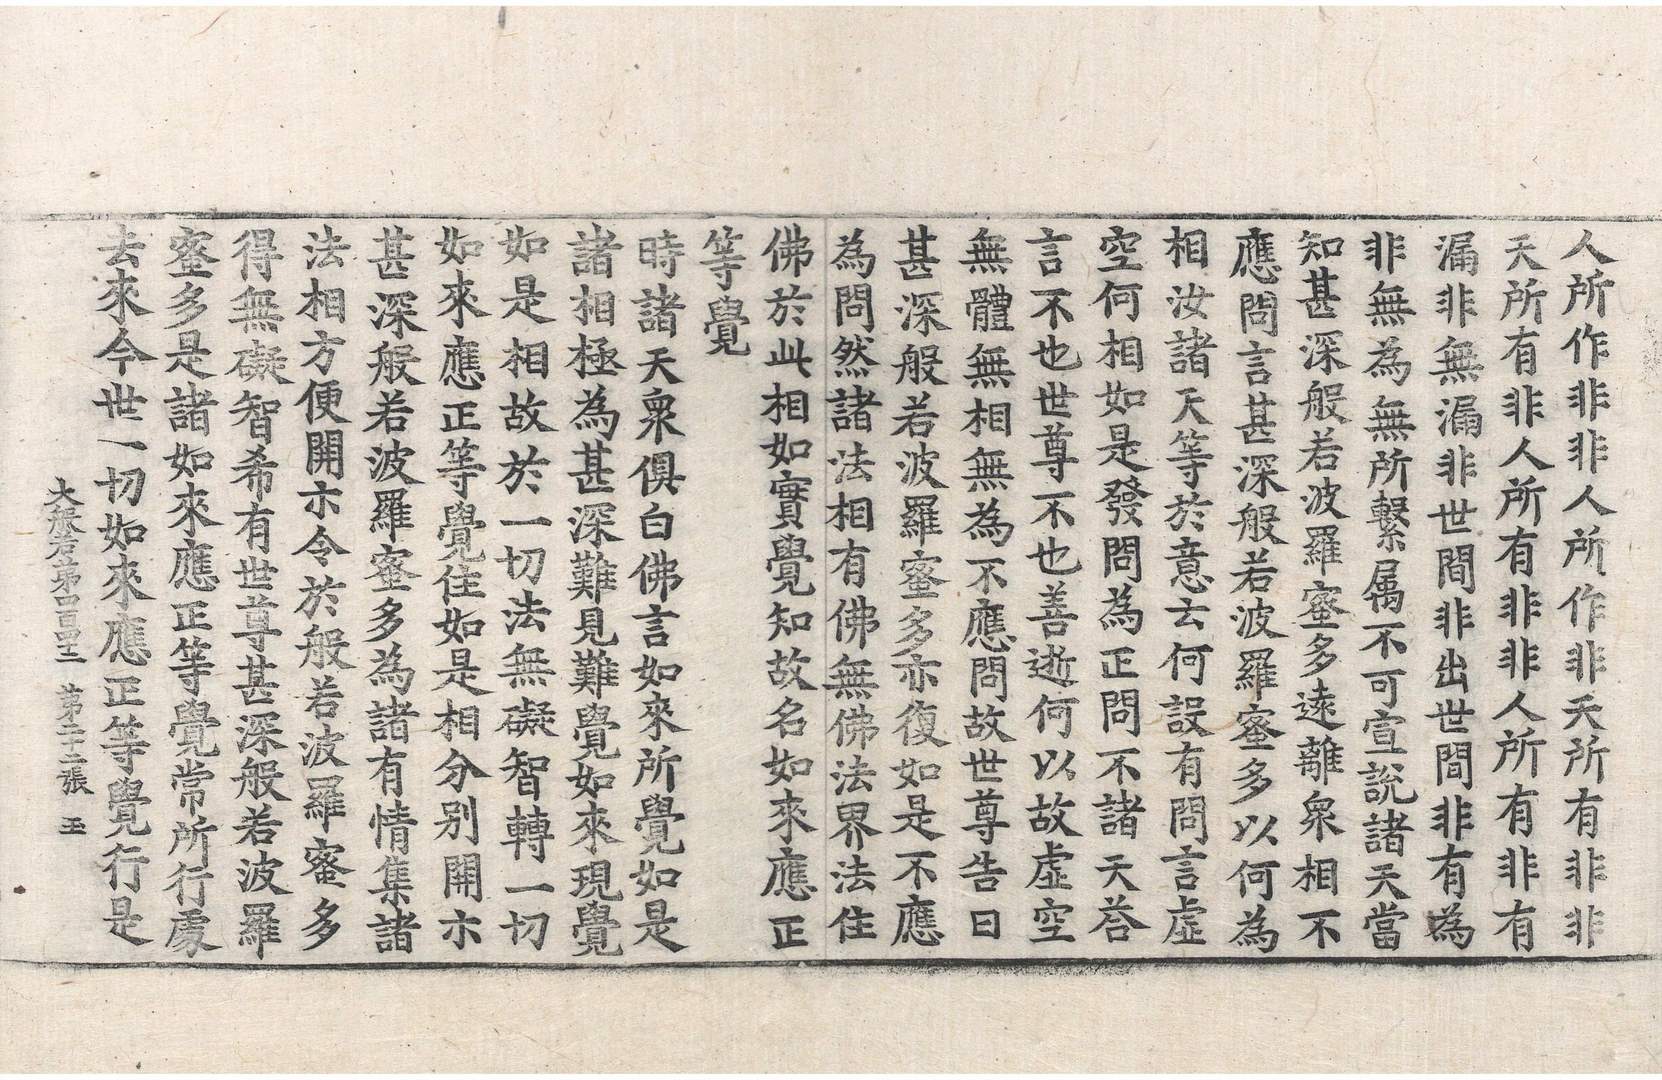 人所作非非人所作非天所有非非
天所有非人所有非非人所有非有
漏非無漏非世間非出世間非有為
非無為無所繫属不可宣說諸天當
知甚深般若波羅蜜多遠離衆相不
應問言甚深般若波羅蜜多以何為
相汝諸天等於意云何設有問言虛
空何相如是發問為正問不諸天荅
言不也世尊不也善逝何以故虛空
無體無相無為不應問故世尊告曰
甚深般若波羅蜜多亦復如是不應
為問然諸法相有佛無佛法界法住
佛於此相如實覺知故名如來應正
等覺
時諸天衆俱白佛言如來所覺如是
諸相極為甚深難見難覺如來現覺
如是相故於一切法無礙智轉一切
如來應正等覺住如是相分別開示
甚深般若波羅蜜多為諸有情集諸
法相方便開示令於般若波羅蜜多
得無礙智希有世尊甚深般若波羅
蜜多是諸如來應正等覺常所行處
去來今世一切如來應正等覺行是
大般若第四百四十二 第二十二張 玉